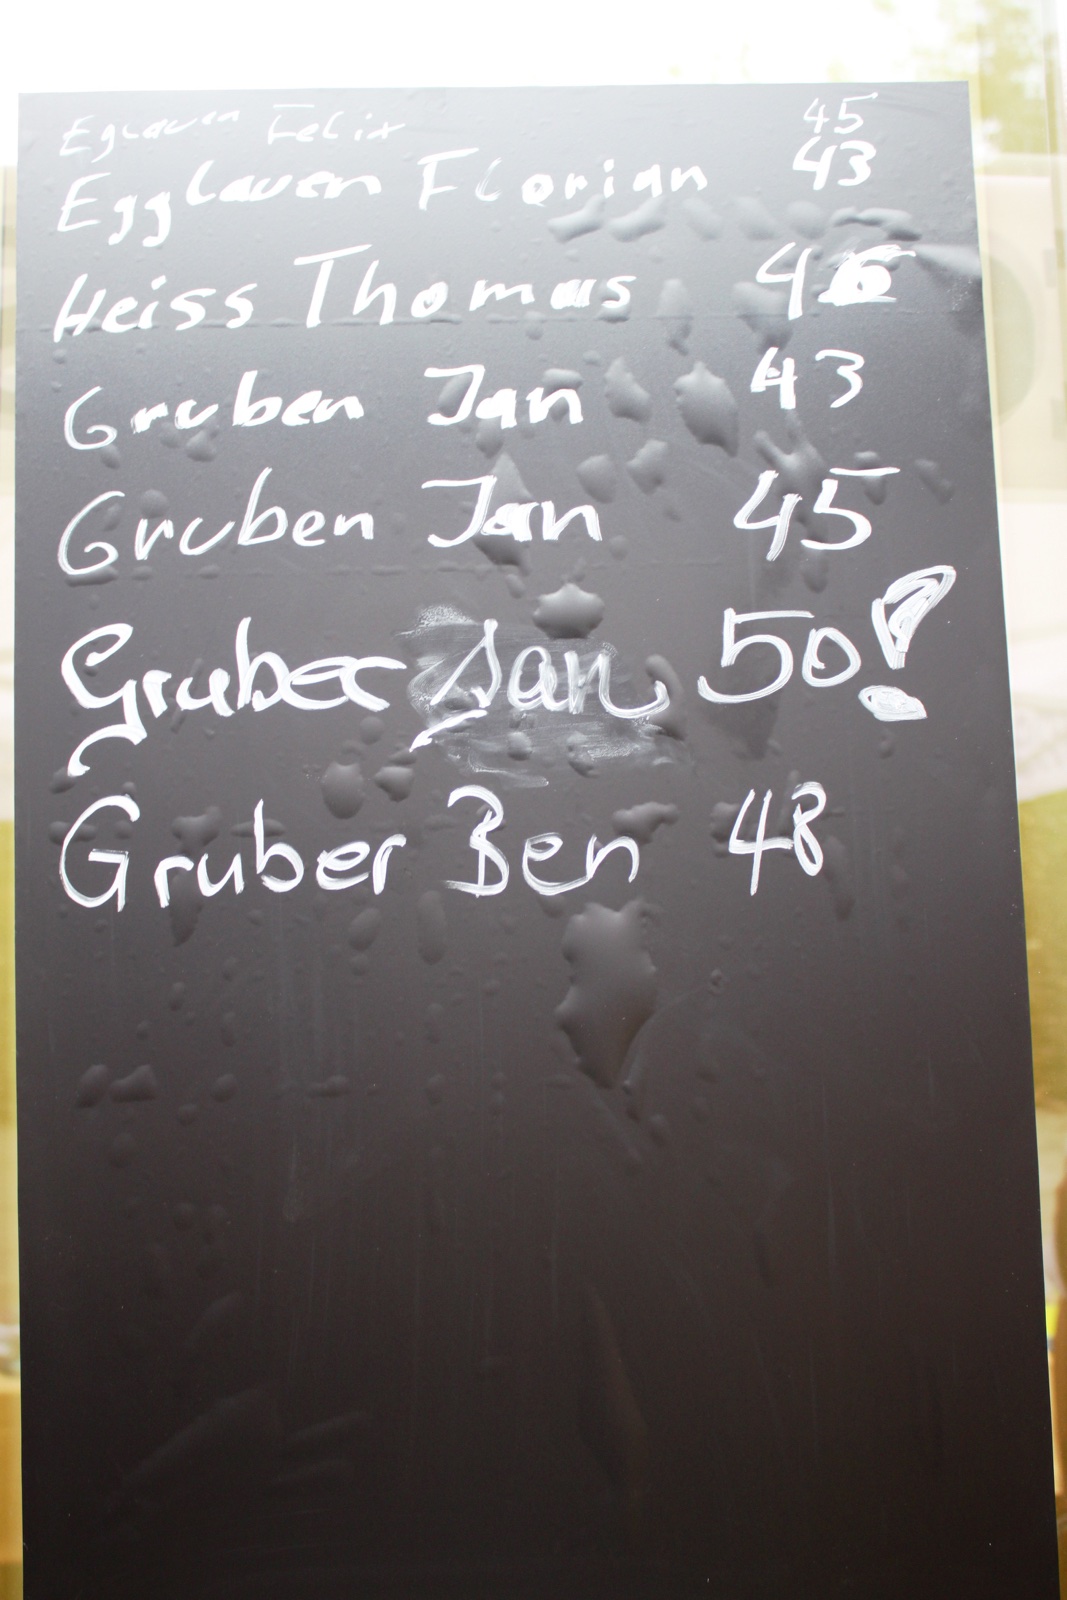 Eglauer Felix 45
Egglauer Florian 43
Heiss Thomas 46
Gruber Jan 43
Gruber Jan 45
Gruber Jan 50!
Gruber Ben 48